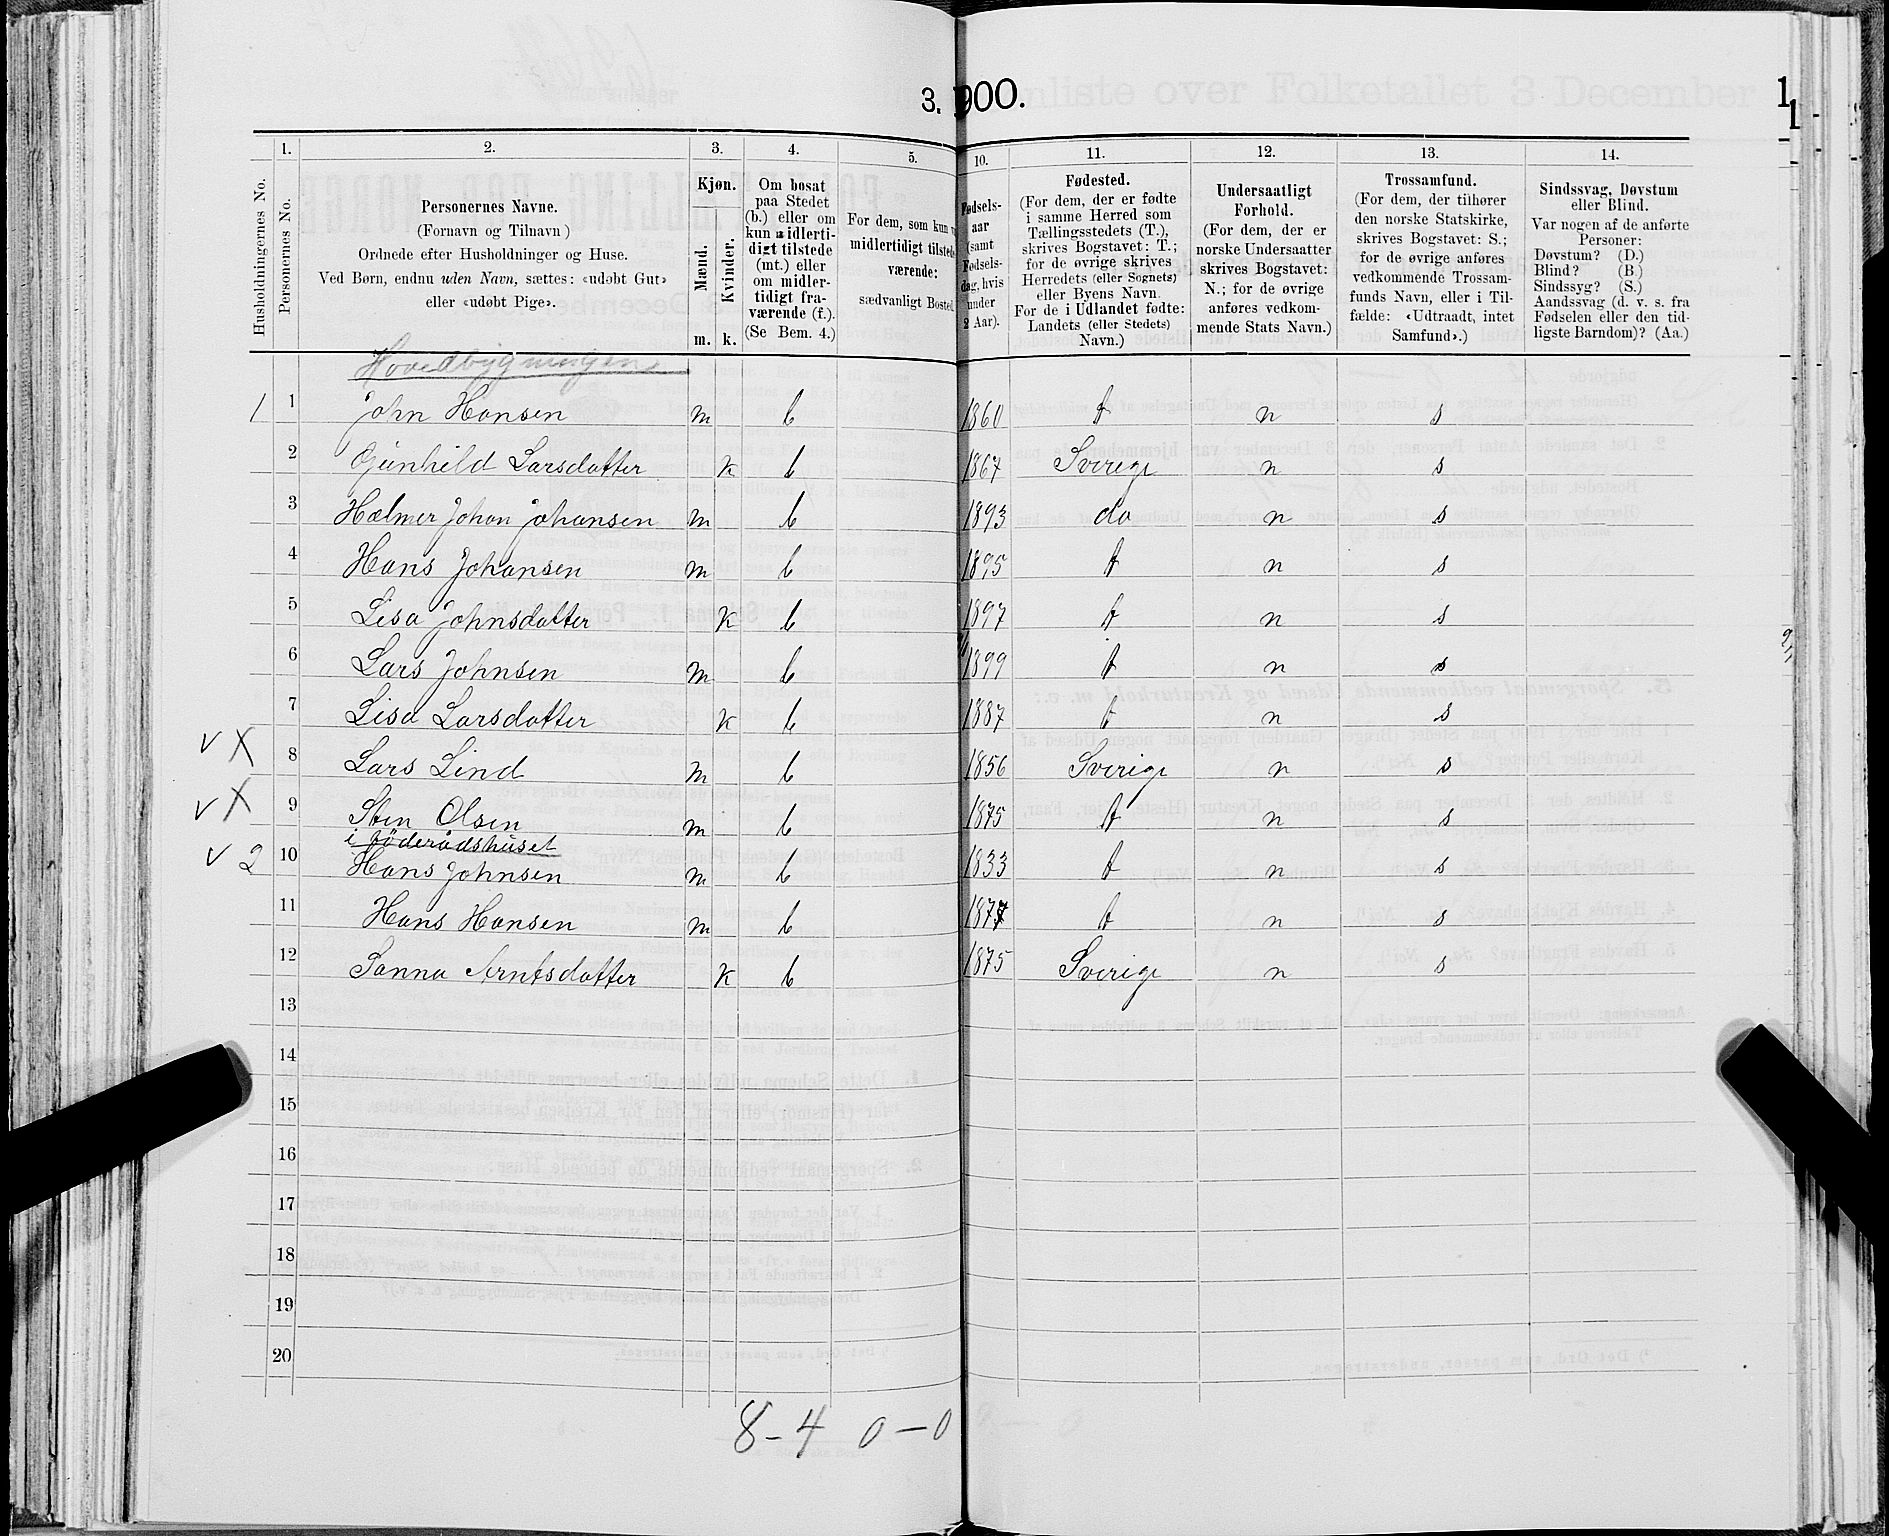 3. 1900. 1
1
Husholdningernes No.
1. Personernes No.
2. Personernes Navne.
(Fornavn og Tilnavn)
Ordnede efter Husholdninger og Huse.
Ved Børn, endnu uden Navn, sættes: «udøbt Gut»
eller «udøbt Pige».
3. Kjøn.
Mænd. Kvinder.
m. k.
4. Om bosat
paa Stedet
(b.) eller om
kun midlerti-
digt tilstede
(mt.) eller
om midler-
tidigt fra-
værende (f.).
(Se Bem. 4.)
5. For dem, som kun
midlertidigt tilstede-
værende:
sædvanligt Bosted.
10. Fødsels-
aar
(samt
Fødsels-
dag, hvis
under
2 Aar).
11. Fødested.
(For dem, der er fødte
i samme Herred som
Tællingsstedets (T.),
skrives Bogstavet: T.;
for de øvrige skrives
Herredets (eller Sognets)
eller Byens Navn.
For de i Udlandet fødte:
Landets (eller Stedets)
Navn.)
12. Undersaatligt
Forhold.
(For dem, der er
norske Undersaatter
skrives Bogstavet:
N.; for de øvrige
anføres vedkom-
mende Stats Navn.)
13. Trossamfund.
(For dem, der tilhører
den norske Statskirke,
skrives Bogstavet: S.;
for de øvrige anføres
vedkommende Trossam-
funds Navn, eller i Til-
fælde: «Udtraadt, intet
Samfund».)
14. Sindssvag, Døvstum
eller Blind.
Var nogen af de anførte
Personer:
Døvstum? (D.)
Blind? (B.)
Sindssyg? (S.)
Aandssvag (d. v. s. fra
Fødselen eller den tid-
ligste Barndom)? (Aa.)
Hovedbygningen
1 1 John Hansen m b 1860 t n s
2 Gunhild Larsdatter k b 1867 Sverige n s
3 Hælmer Johan Johansen m b 1893 do n s
4 Hans Johansen m b 1895 t n s
5 Lisa Johnsdatter k b 1897 t n s
6 Lars Johnsen m b 1899 t n s
7 Lisa Larsdatter k b 1887 t n s
v X 8 Lars Lind m b 1856 Sverige n s
v X 9 Sten Olsen m b 1875 t n s
i föderådshuset
v 2 10 Hans Johnsen m b 1833 t n s
11 Hans Hansen m b 1877 t n s
12 Sanna Arntsdatter k b 1875 Sverige n s
13
14
15
16
17
18
19
20
8-4 0-0